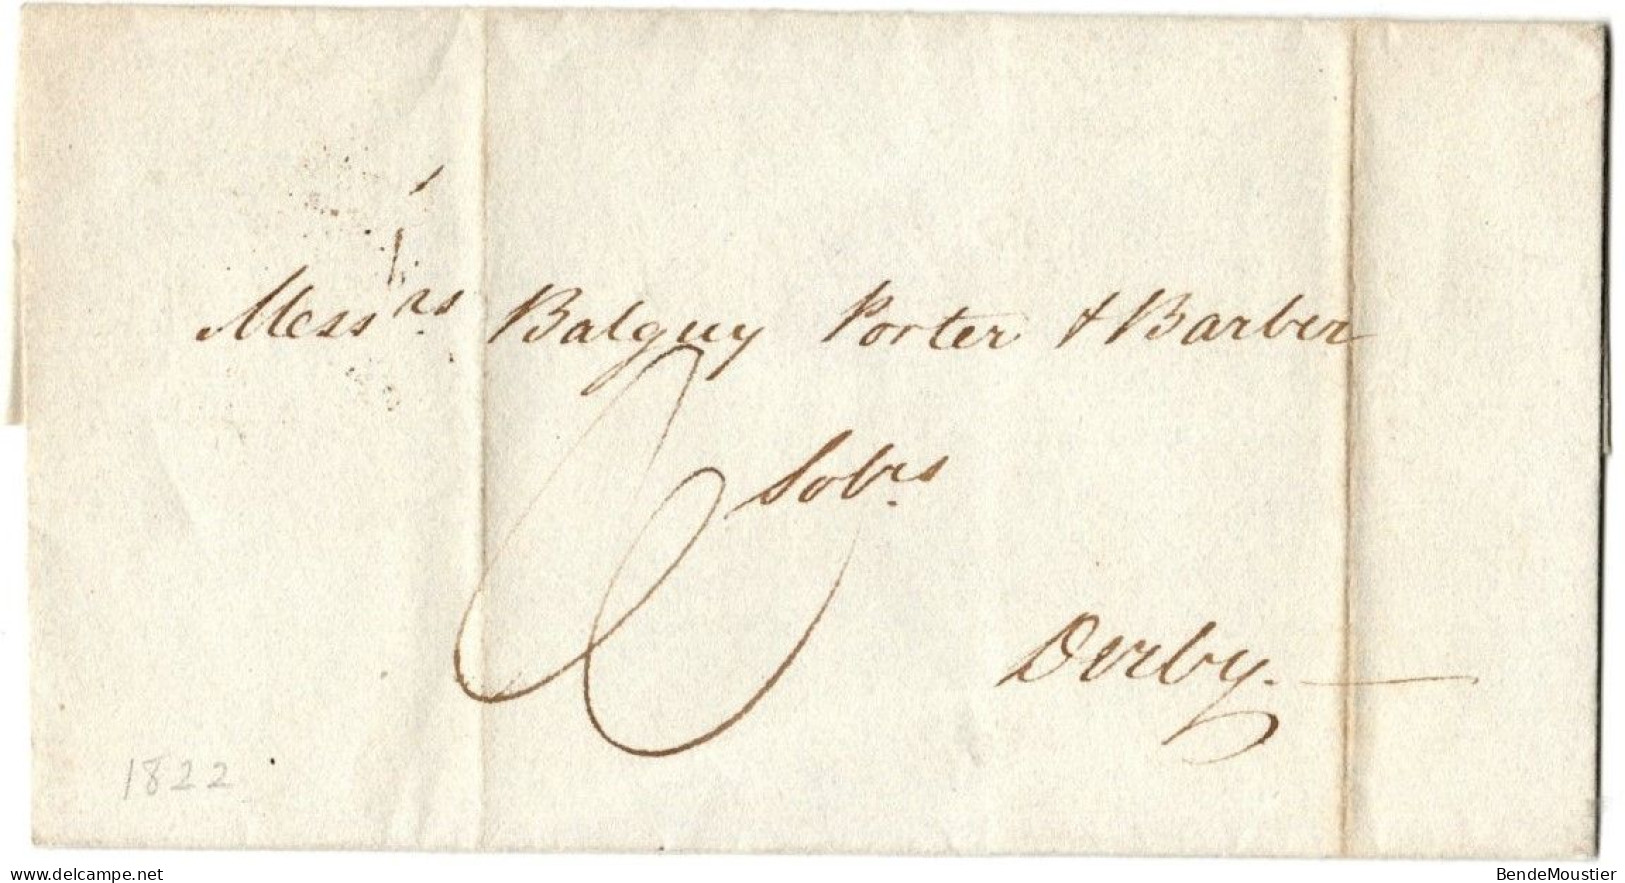 Mess.rs Balguy Porter & Barber
Solrs.
Derby.
1822
www.delcampe.net
BendeMoustier